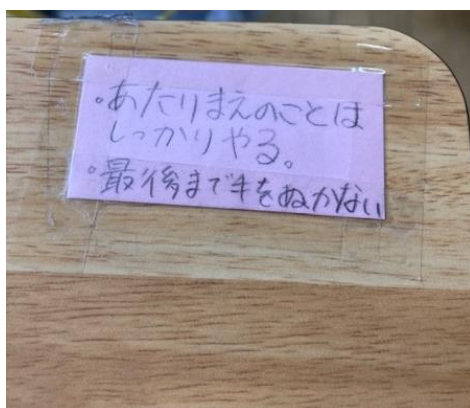 ・あたりまえのことは
しっかりやる。
・最後まで手をぬかない